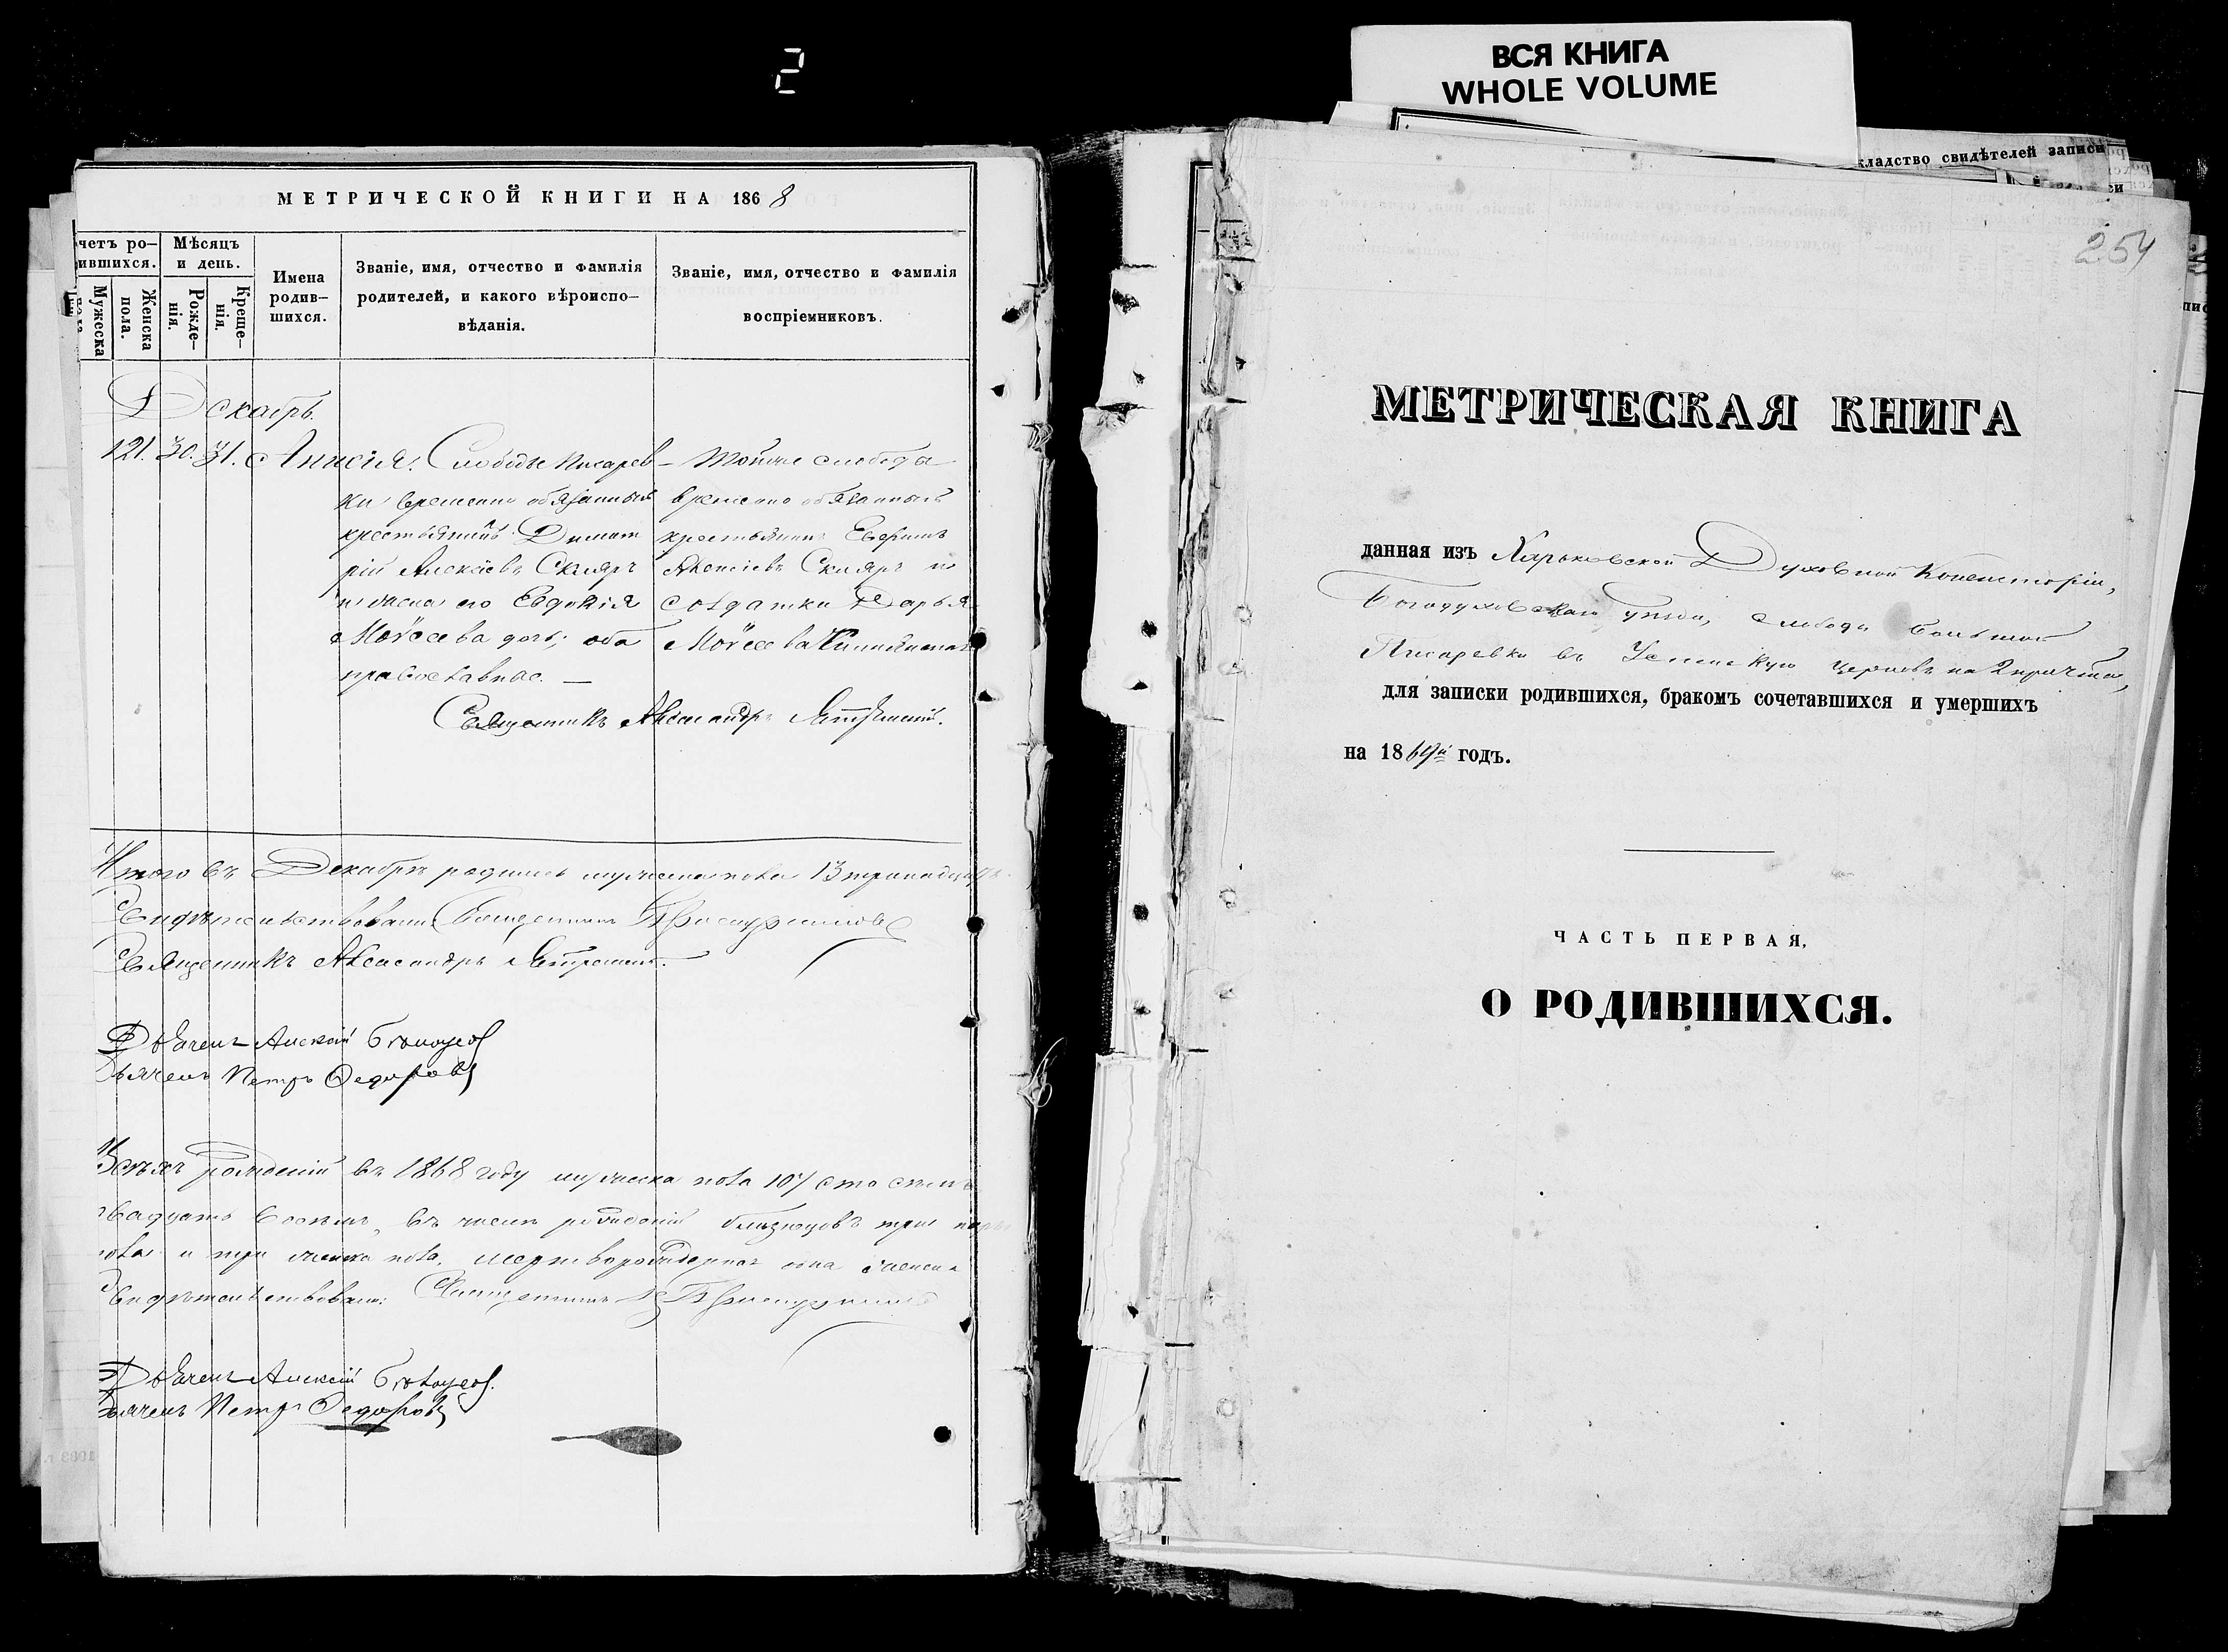 2
ВСЯ КНИГА
WHOLE VOLUME
кладство свидѣтелей записи
254
МЕТРИЧЕСКОЙ КНИГИ НА 1868
четъ ро-
ившихся.
Мужеска
Женска
пола.
Мѣсяцъ
и день.
Рожде-
нія.
Креще-
нія.
Имена
родив-
шихся.
Званіе, имя, отчество и фамилія
родителей, и какого вѣроиспо-
вѣданія.
Званіе, имя, отчество и фамилія
воспріемниковъ.
Декабрь.
121. 30. 31. Анисія.
Слободы Писарев-
ки временно обязанный
крестьянинъ Димит
рій Алексѣевъ Скляръ
и жена его Евдокія
Моѵсеева дочь; оба
православные. —
Тойже слободы
временно обязанный
крестьянинъ Ефимъ
Алексіевъ Скляръ и
солдатка Дарья
Моѵсеева
Священникъ Александръ
Итого въ Декабрѣ родилось мужеска пола 13 тринадцать
Свидѣтельствовали: Священникъ
Священникъ Александръ
Дьячекъ Алексѣй Бѣлоусовъ
Дьячекъ Петръ Федоровъ
Всѣхъ рожденій въ 1868 году мужеска пола 107 сто семь
двадцать восемь, въ числѣ рожденій близнецовъ три пары
пола и три женска пола, мертворожденная одна женска
Свидѣтельствовали: Священникъ
Дьячекъ Алексѣй Бѣлоусовъ.
Дьячекъ Петръ Федоровъ
МЕТРИЧЕСКАЯ КНИГА
данная изъ Харьковской Духовной Консисторіи,
Богодуховскаго уѣзда, слободы Большой
Писаревки въ Успенскую церковь на 2 причта,
для записки родившихся, бракомъ сочетавшихся и умершихъ
на 1869й годъ.
ЧАСТЬ ПЕРВАЯ,
О РОДИВШИХСЯ.